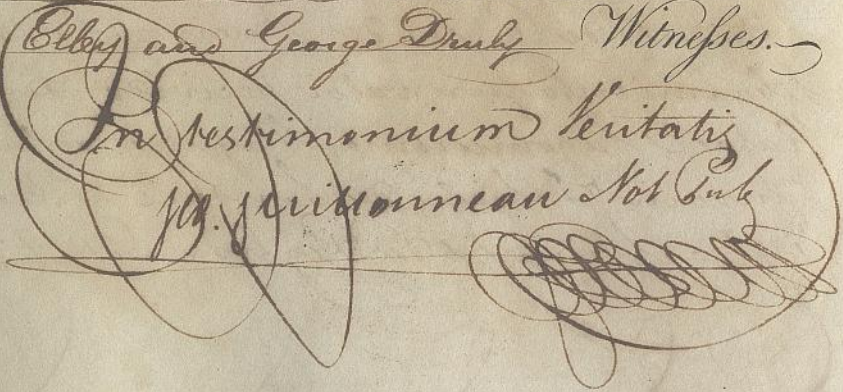 Elley and George Druly Witnesses.
In testimonium Veritatis
Not Pub